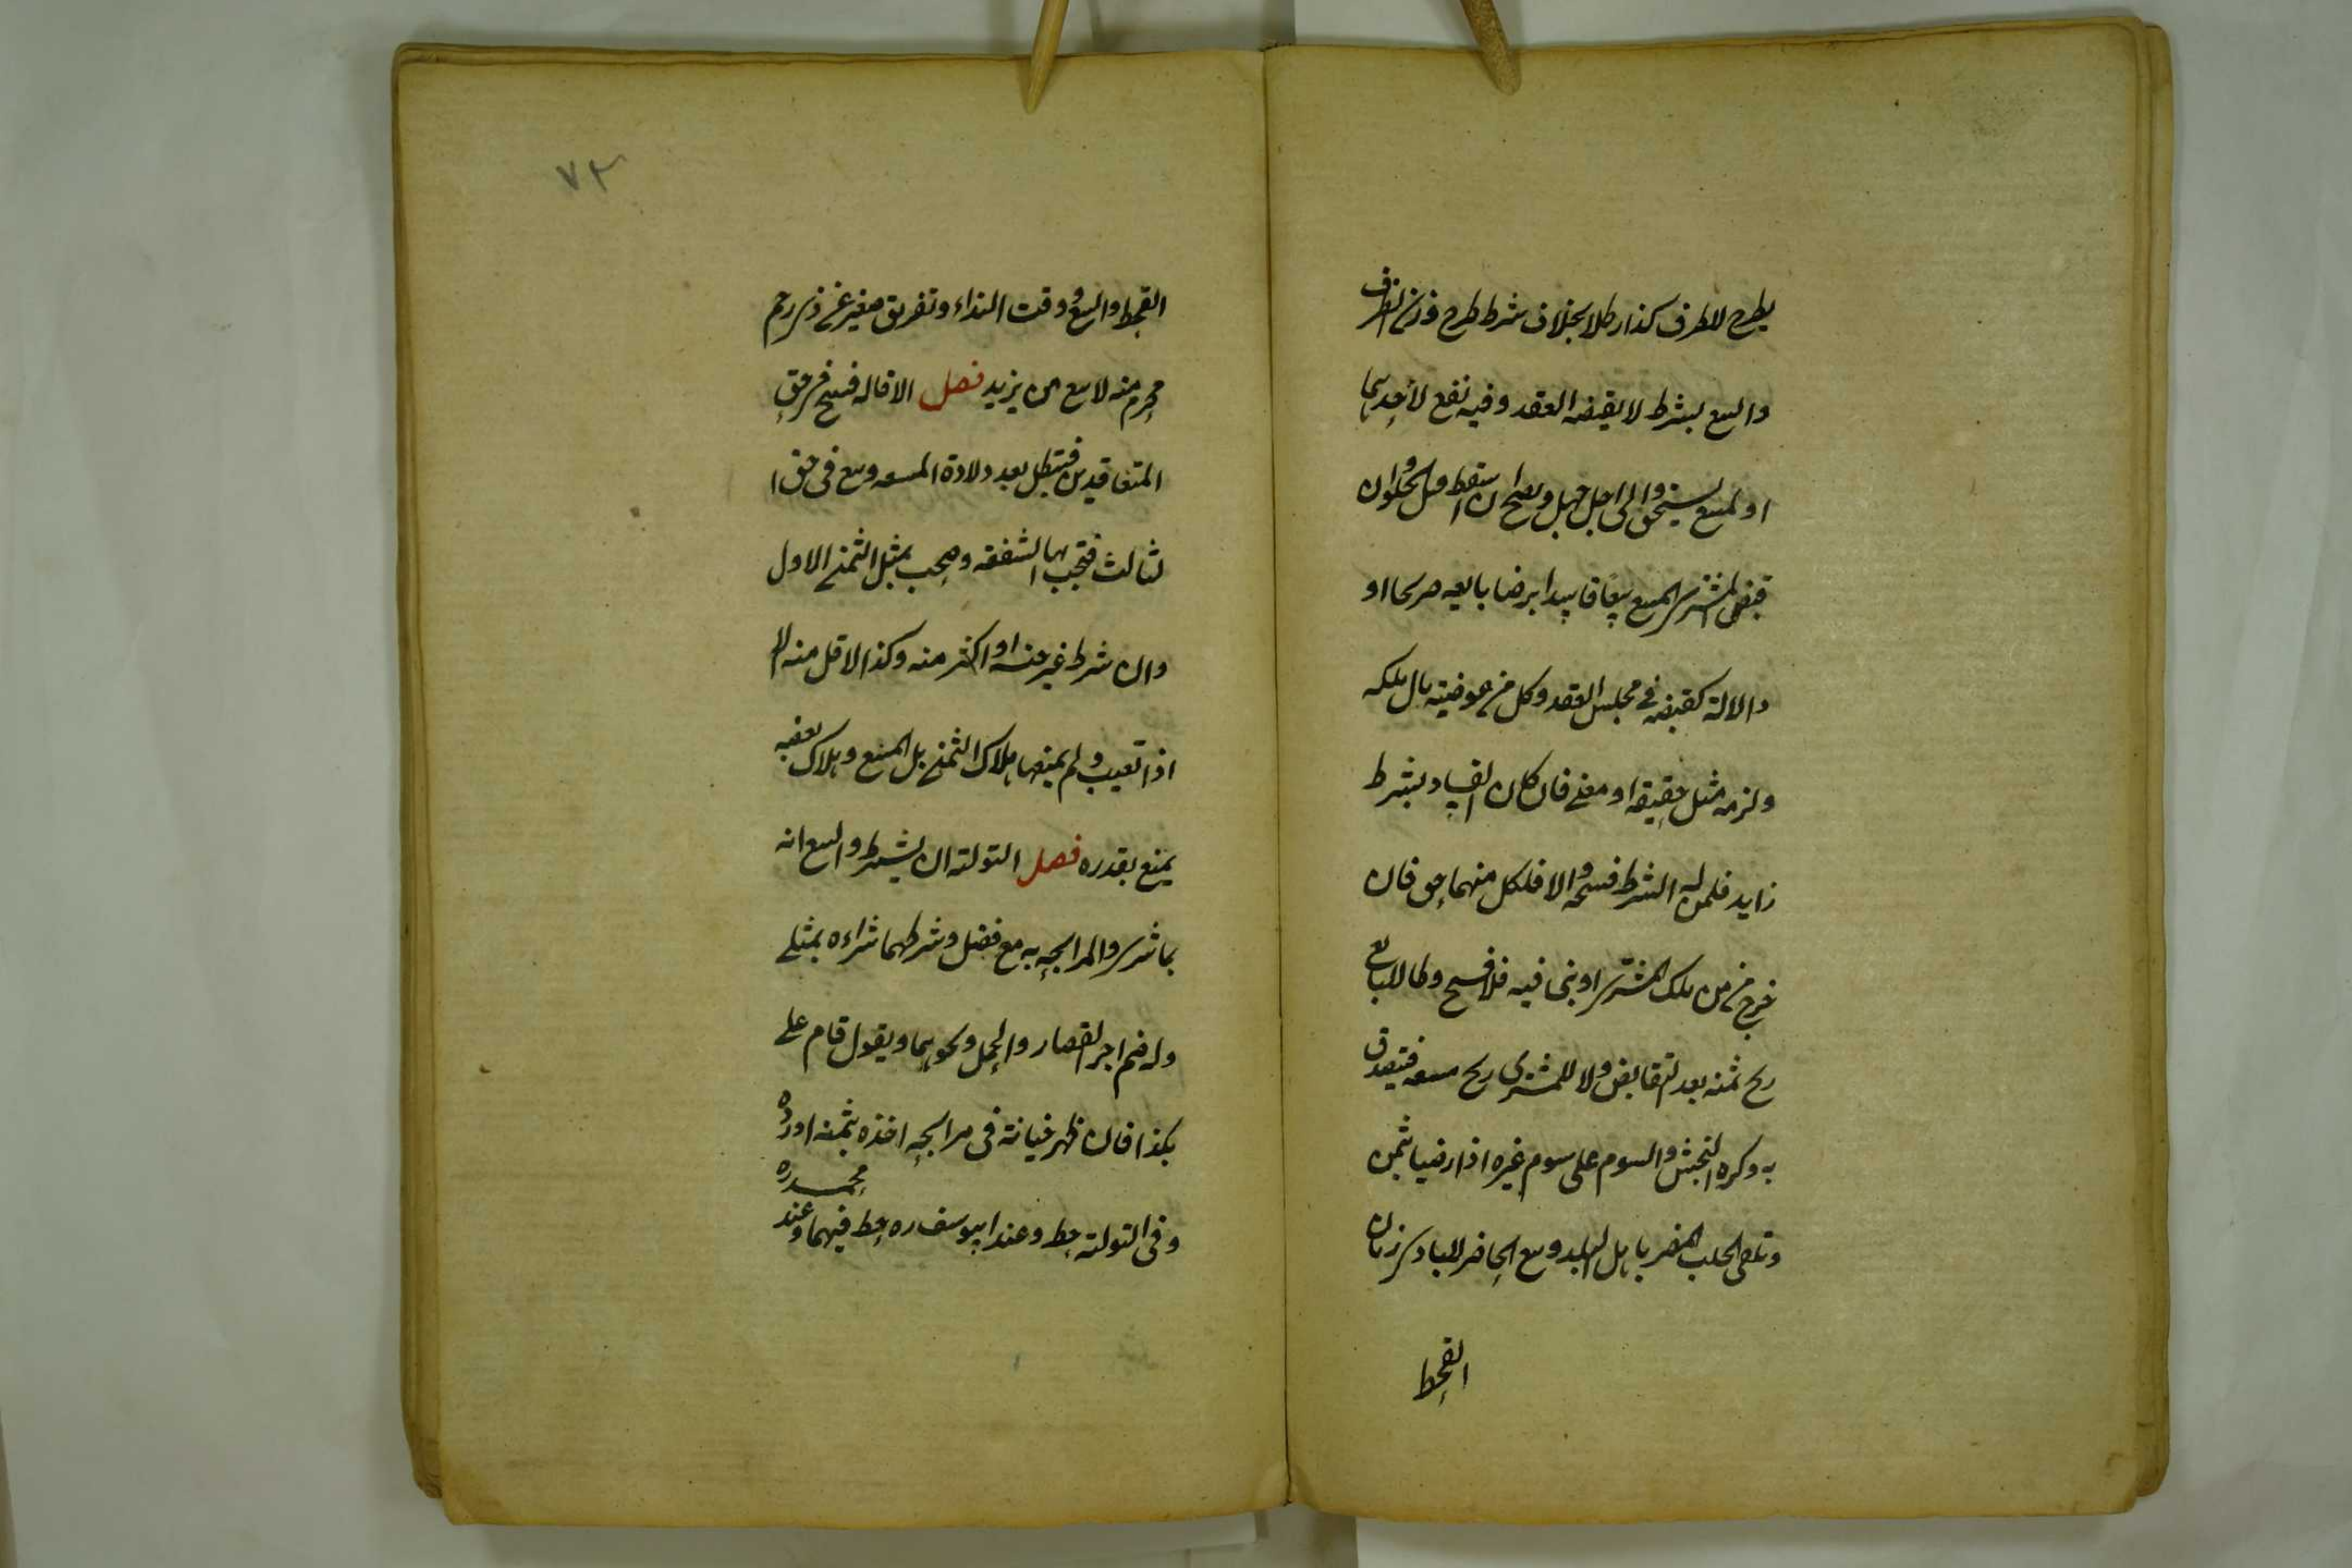 يطرح للظرف كذا رطلا بخلاف شرط طرح وزن الظرف
والبيع بشرط لا يقيضه العقد وفيه نفع لأحدهما
او لمبيع يستحق والى اجل جهل وصح ان اسقط قبل الحلول وان
قبض المشترى المبيع بيعا فاسدا برضا بايعه صريحا او
دالالة كقبضه فى مجلس العقد وكل من عوضيه مال ملكه
ولزمه مثله حقيقة او معنى فان كان الفساد بشرط
زايد فلمن له الشرط فسخه والا فلكل منهما حق فان
خرج من ملك المشترى او بنى فيه فلا فسخ وطاب للبايع
ربح ثمنه بعد التقابض ولا للمشترى ربح مبيعه فيتصدق
به وكره النجش والسوم على سوم غيره اذا رضيا بثمن
وتلقى الجلب المضر باهل البلد وبيع الحاضر للبادى زمان
القحط
٧٣
القحط والبيع وقت النداء وتفريق صغير عن ذى رحم
محرم منه لا بيع من يزيد فصل الاقاله فسخ فى حق
المتعاقدين فتبطل بعد ولادة المبيعه وبيع فى حق ا
لثالث فتجب بها الشفعه وصحت بمثل الثمن الاول
وان شرط غير جنسه او اكثر منه وكذا الاقل منه الا
اذا تعيب ولم يمنعها هلاك الثمن بل المبيع وهلاك بعضه
يمنع بقدره فصل التولية ان يشترط والبيع انه
بما شرى والمرابحه به مع فضل وشرطهما شراءه بمثلى
وله ضم اجر القصار والحمل ونحوهما ويقول قام على
بكذا فان ظهر خيانة فى مرابحه اخذه بثمنه او رده
وفى التولية حط وعند ابيوسف ره حط فيهما وعند
محمد ره